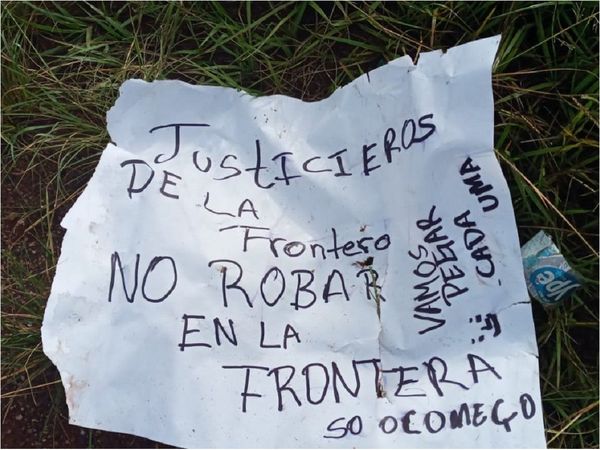 JUSTICIEROS
DE LA
Frontero
NO ROBAR
EN LA
FRONTERA
SO OCOMEGO
VAMOS
PEGAR
CADA UMA